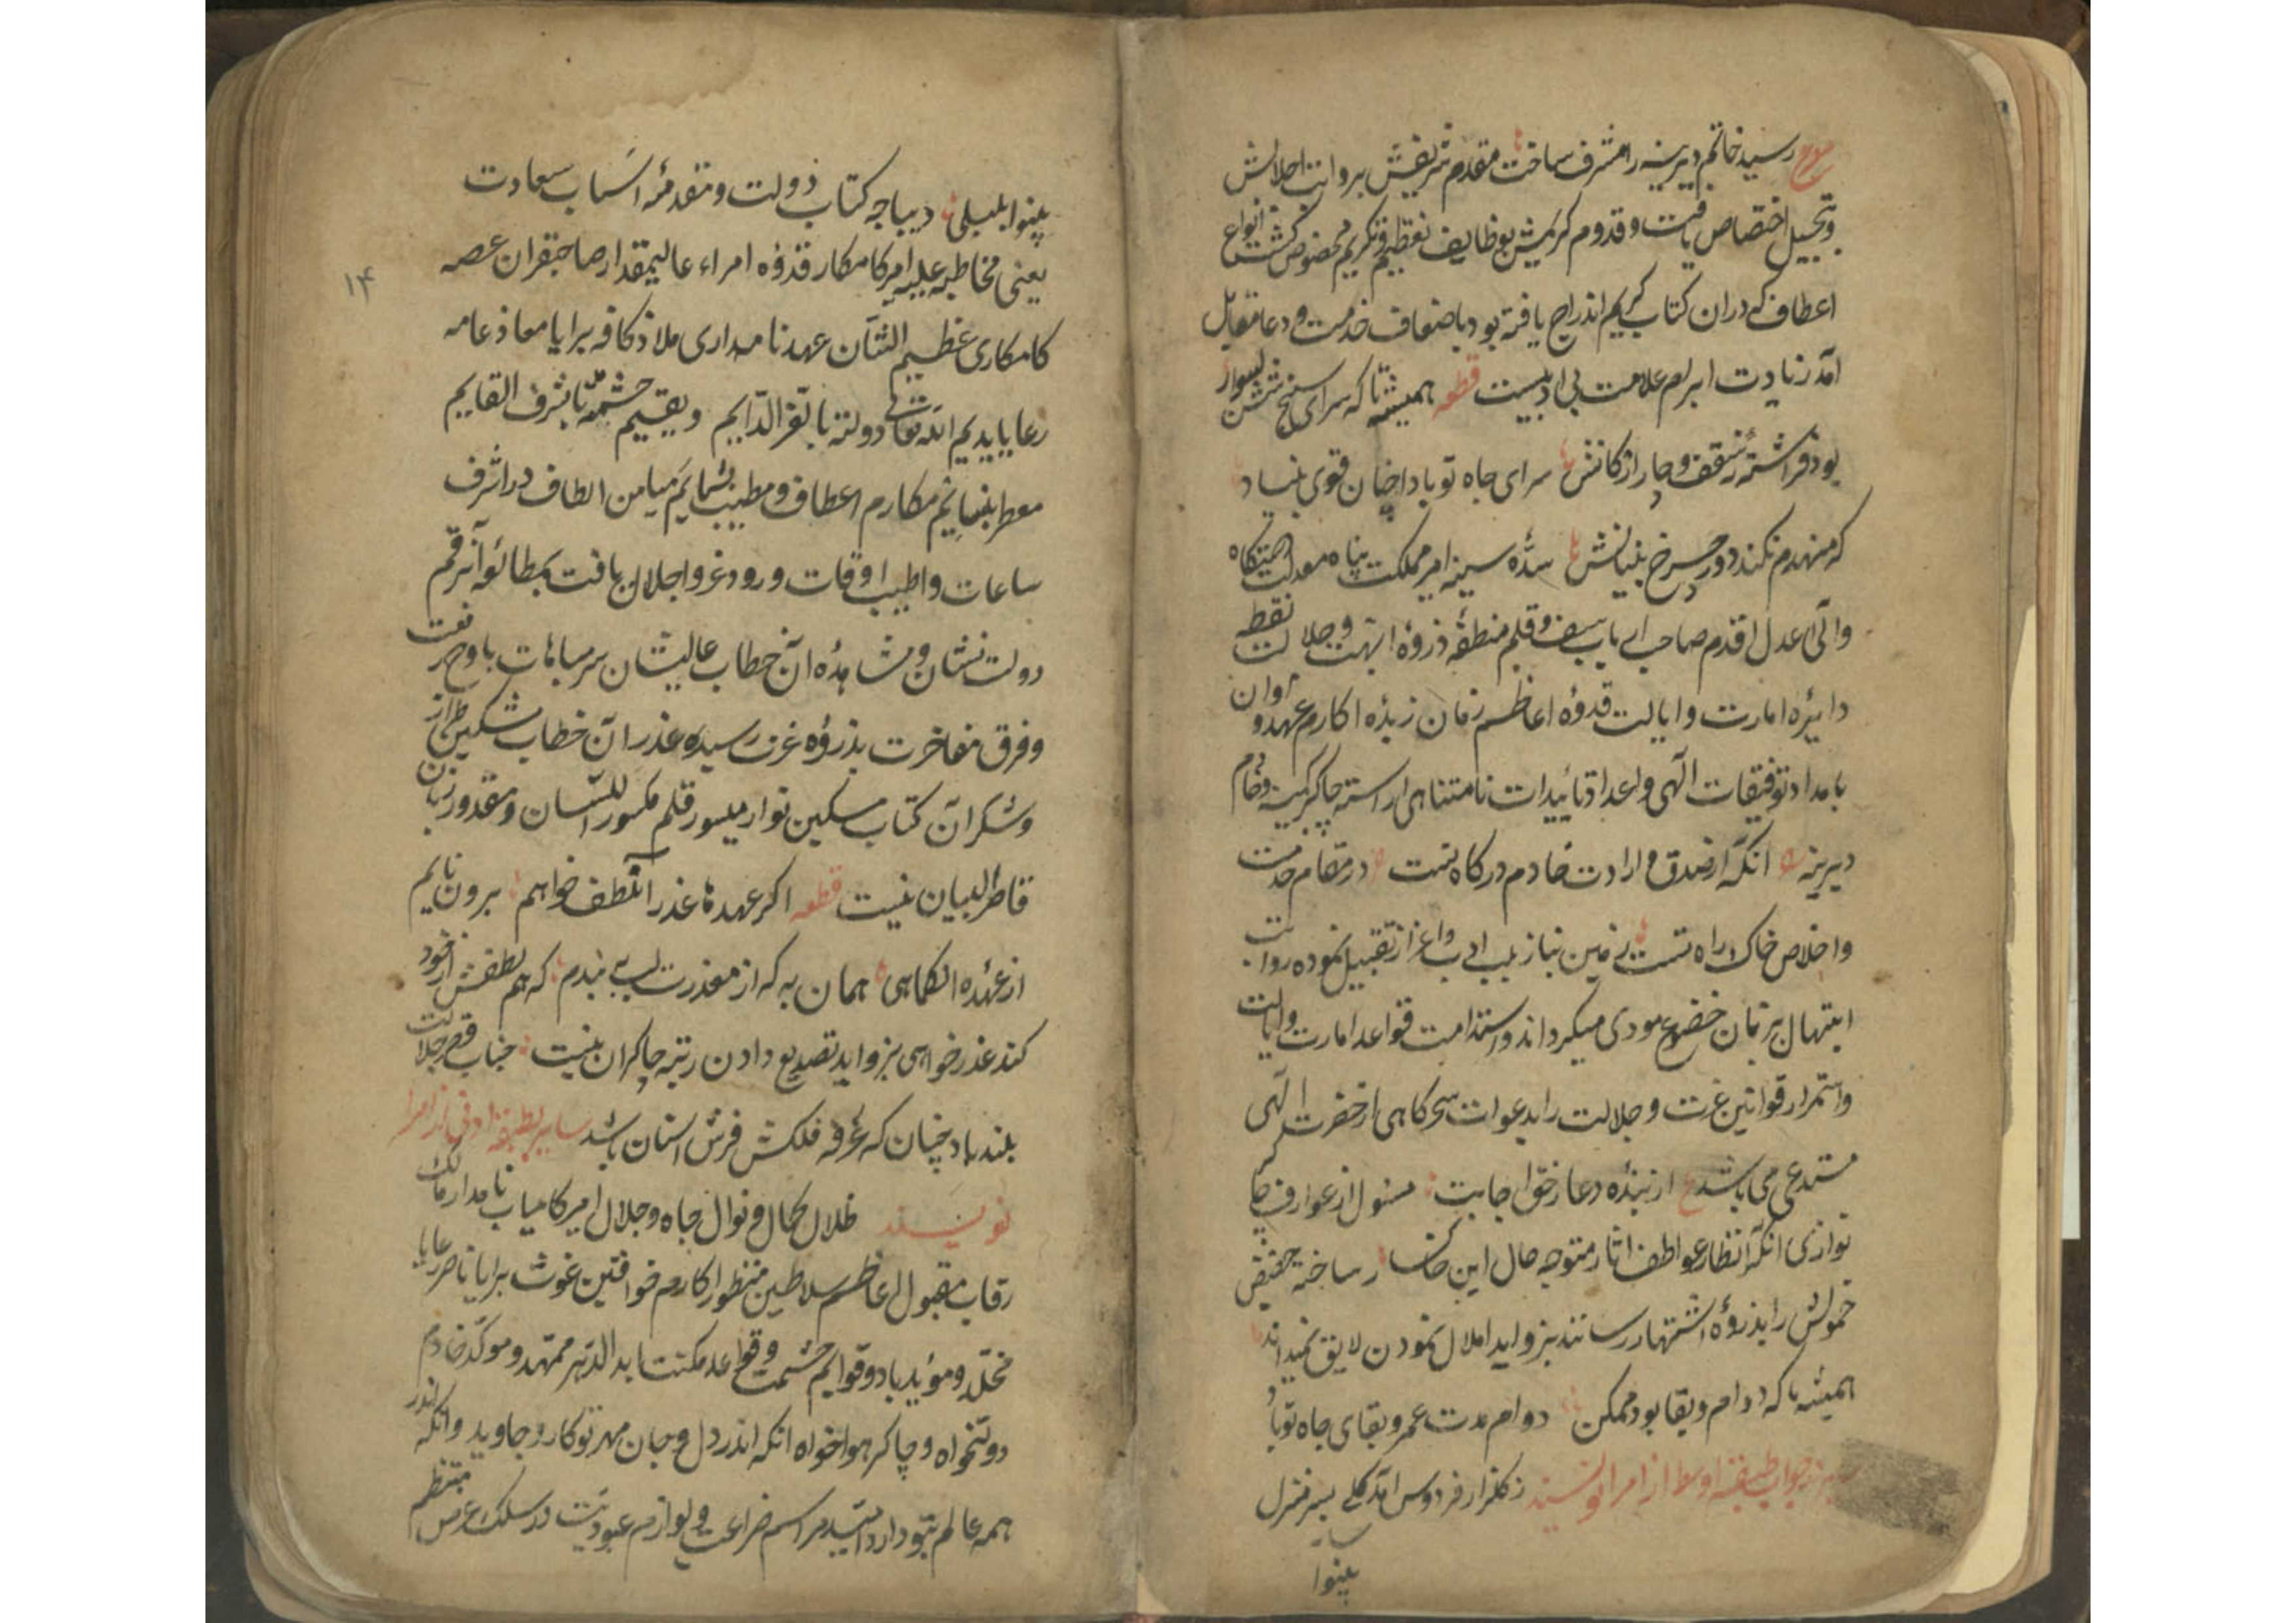 رسید خاتم دیرینه را مشرف ساخت مقدم شریفش بروایت اجلالش
و تبجیل اختصاص یافت و قدوم کریمش بوظایف تعظیم و تکریم مخصوص گشت انواع
اعطاف که دران کتاب کریم اندراج یافته بود باضعاف خدمت و دعا مقابل
آمد زیادت ابرام علامت بی ادبیست قطعه همیشه تا که سرای سپنج شش
بود فراشته سقف و چار ارکانش سرای جاه تو بادا چنان قوی بنیاد
که منهدم نکند دور چرخ بنیانش سده سنیه امیر مملکت پناه معدلت
والی اعدل اقدم صاحب ارباب سیف و قلم منطقه ذروه ابهت و جلالت نقطه
دایره امارت و ایالت قدوه اعاظم زمان زبده اکارم عهد و اوان
بامداد توفیقات الهی و اعداد تائیدات نامتناهی اراسته چاکر کمینه و خادم
دیرینه انکه از صدق و ارادت خادم درگاه تست در مقام خدمت
و اخلاص خاک راه تست زمین نیاز بلب ادب و اعزاز تقبیل نموده روایت
ابتهال بر تمان خضوع مودی میکرداند و استدامت قواعد امارت و ایالت
و استمرار قوانین عزت و جلالت را بدعوات سحرگاهی از حضرت الهی
مستدعی می باشد ع از بنده دعا ز حق اجابت مسئول از عوارف
نوازی انکه انظار عواطف اثار متوجه حال این خاکسار ساخته حضیض
خمولش را بذروه اشتهار رسانند بزواید املال نمودن لایق نمیداند
همیشه تا که دوام و بقا بود ممکن دوام مدت عمر و بقای جاه تو باد
جواب طبقه اوسط از امرا نویسند ز گلزار فردوس آمد گلی بسر منزل
بینوا
بینوا بلبلی دیباجه کتاب دولت و مقدمه اسباب سعادت
یعنی مخاطبه علیه امیر کامکار قدوه امراء عالیمقدار صاحبقران عصر
کامکاری عظیم الشان عهد نامداری ملاذ کافه برایا معاذ عامه
رعایا یدیم الله تعالی دولته بالعز الدایم و یقیم حشمته بالشرف القایم
معطر بنسایم مکارم اعطاف و مطیب بشمایم میامن الطاف در اشرف
ساعات و اطیب اوقات ورود عز و اجلال یافت بمطالعه آن رقم
دولت نشان و مشاهده آن خطاب عالیشان سر مباهات باوج رفعت
و فرق مفاخرت بذروه عزت رسیده عذر آن خطاب مشکین طراز
و شکر آن کتاب مسکین نواز میسور قلم مکسور اللسان و مقدور زبان
قاصر البیان نیست قطعه اگر عهدها عذر آن لطف خواهم برون نایم
از عهده ان کماهی همان به که از معذرت لب ببندم که هم لطفش از خود
کند عذر خواهی بزواید تصدیع دادن رتبه چاکران نیست جناب قصر جلالت
بلند باد چنان که غرفه فلکش فرش استان باشد سایر طبقه ادنی از امرا
نویسند ظلال کمال و نوال جاه و جلال امیر کامیاب نامدار مالک
رقاب مقبول اعاظم سلاطین منظور اکارم خواقین غوث برایا ناصر رعایا
مخلد و مؤید باد و قوایم حشمت و قواعد مکنت ابد الدهر ممهد و موکد خادم
دولتخواه و چاکر هواخواه انکه اندر دل و جان مهر تو کارد جاوید وانکه اندر
همه عالم بتو دارد امید مراسم ضراعت و لوازم عبودیت در سلک عرض منتظم
۱۴